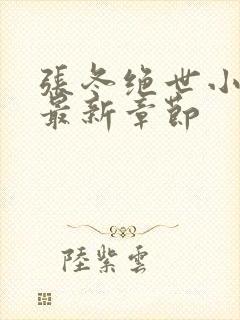 張冬绝世小
最新章節
陸紫雲